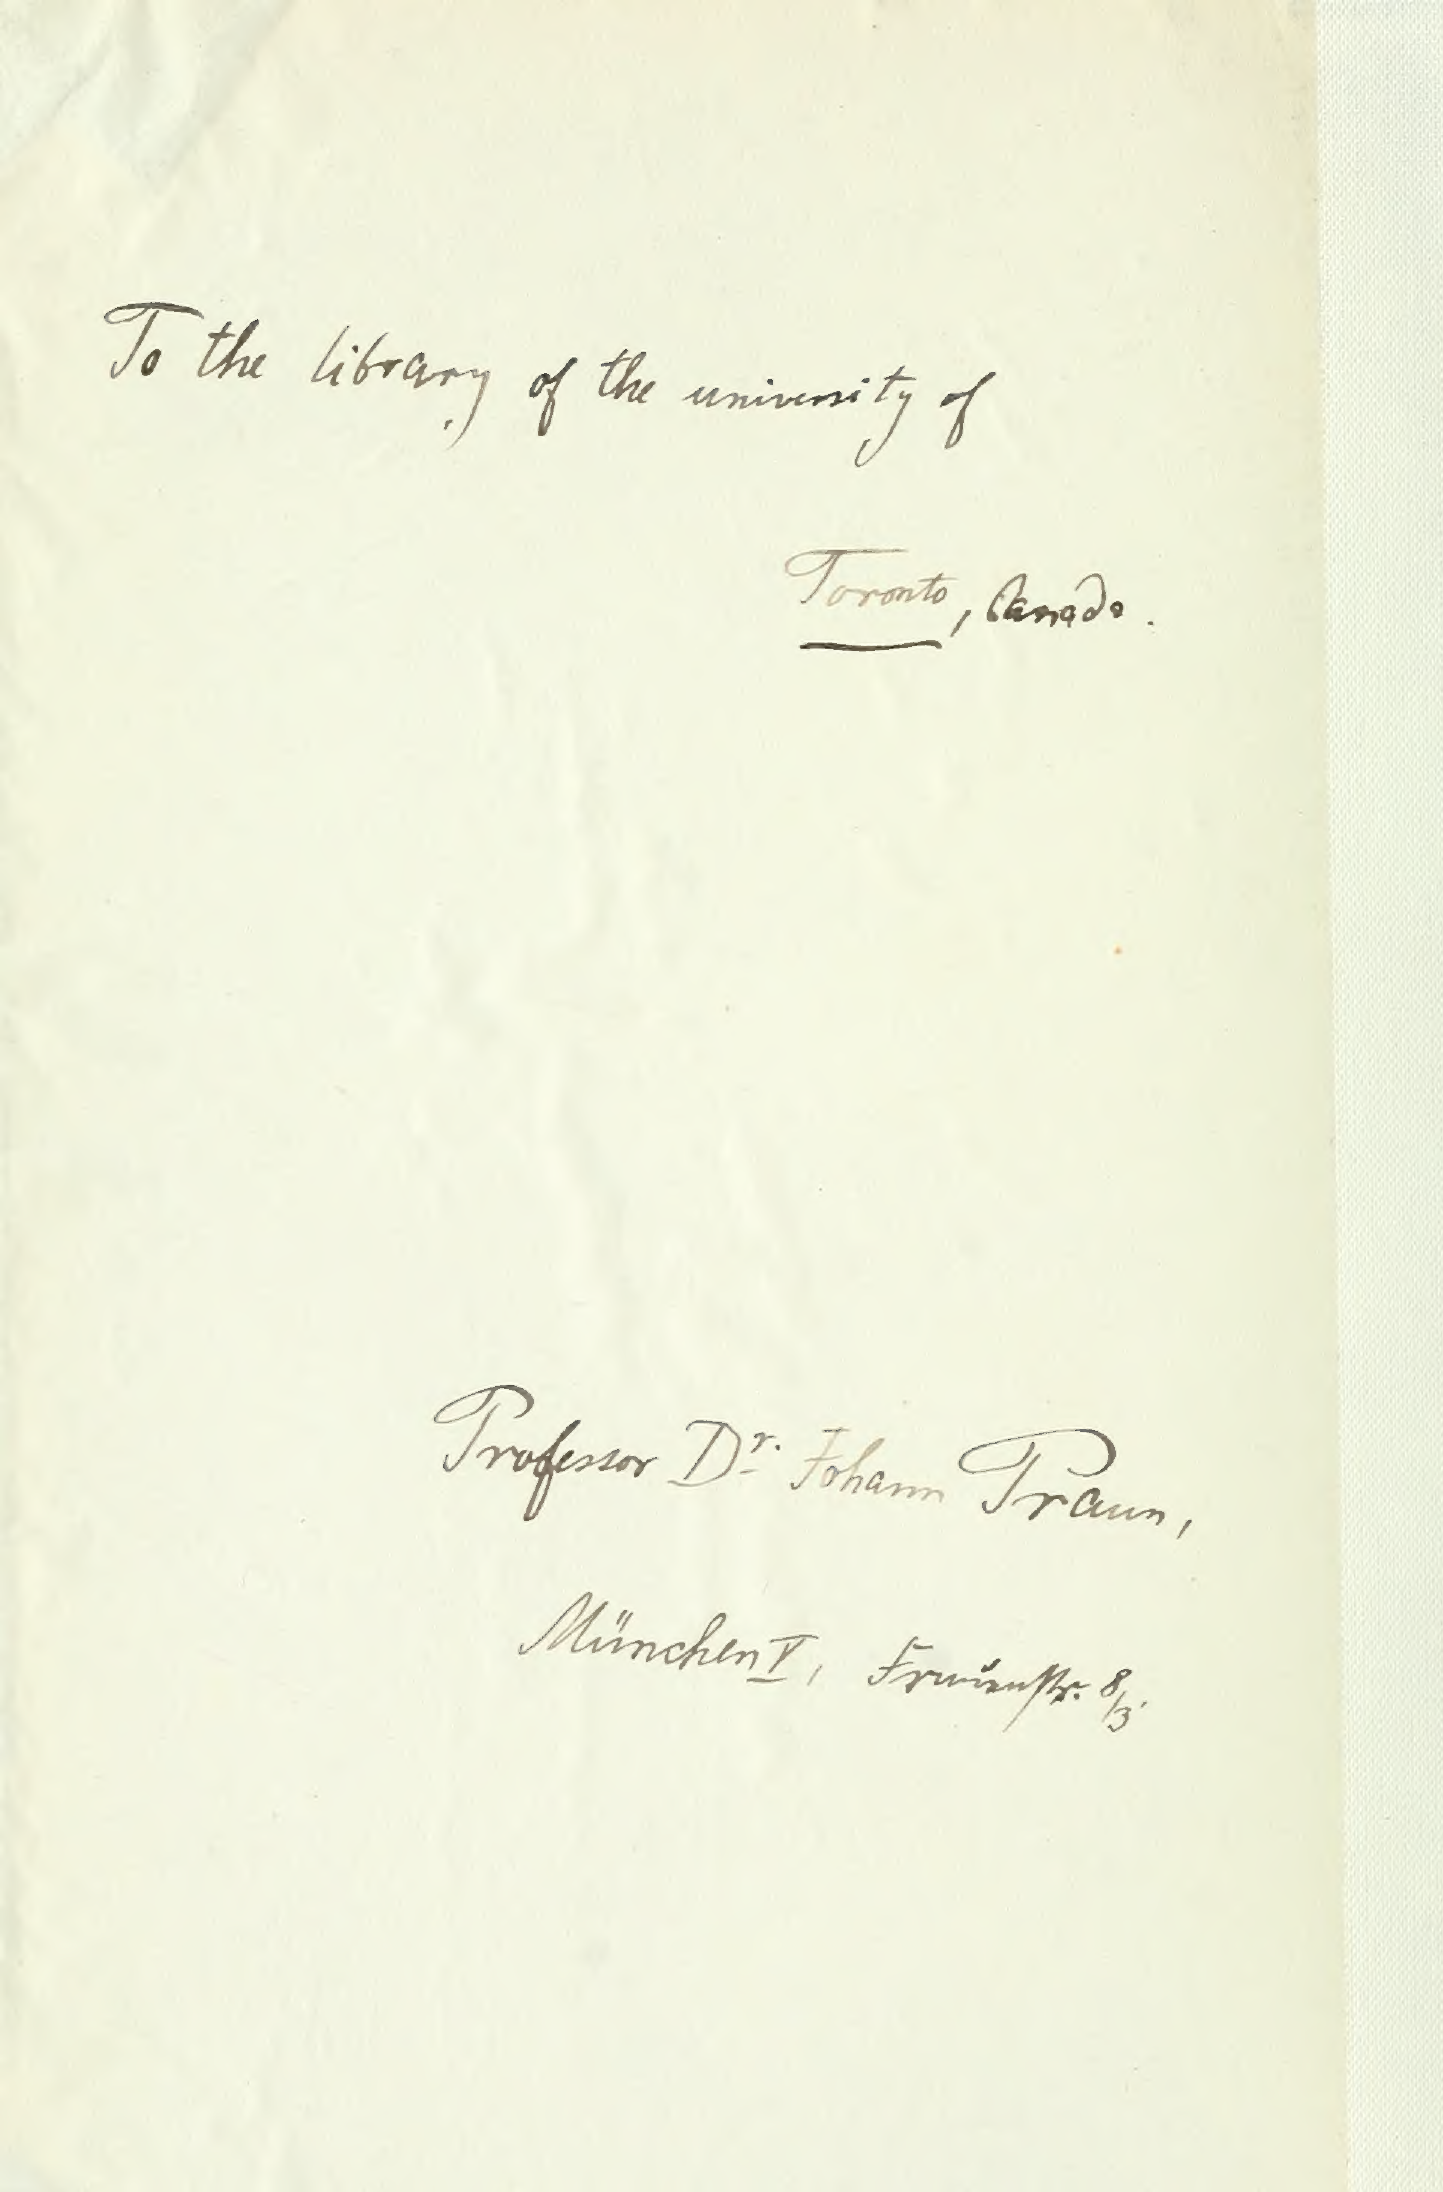 To the library of the university of
Toronto, Canada.
Professor Dr. Johann Praun,
München V, Frauenstr. 8/3.